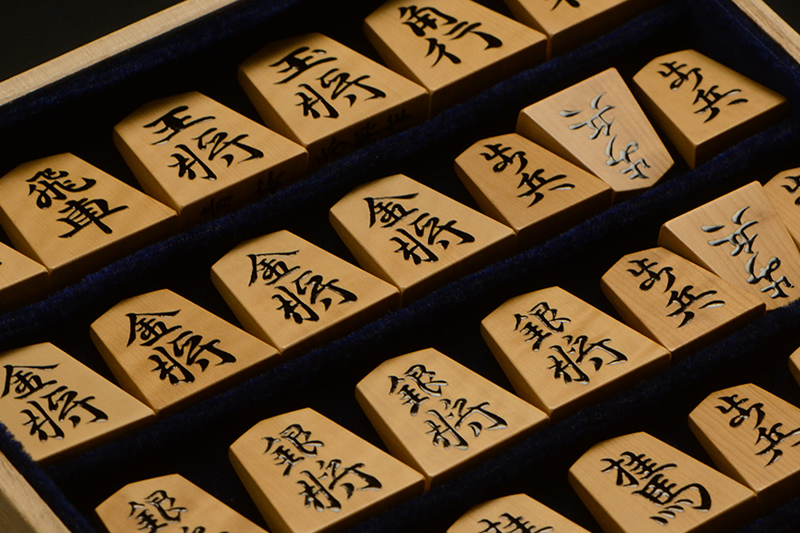 飛車
王将
玉将
角行
金将
金将
金将
金将
歩兵
歩兵
歩兵
銀将
銀将
銀将
銀
歩兵
歩兵
桂
桂馬
歩兵